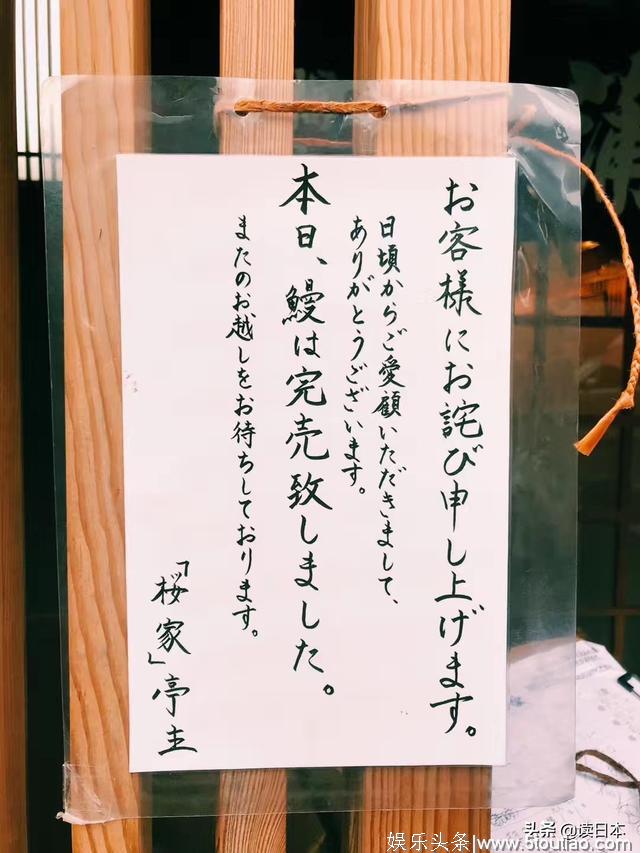 お客様にお詫び申し上げます。
日頃からご愛顧いただきまして、
ありがとうございます。
本日、鰻は完売致しました。
またのお越しをお待ちしております。
「桜家」亭主
头条 @读日本
娱乐头条|www.51toutiao.com